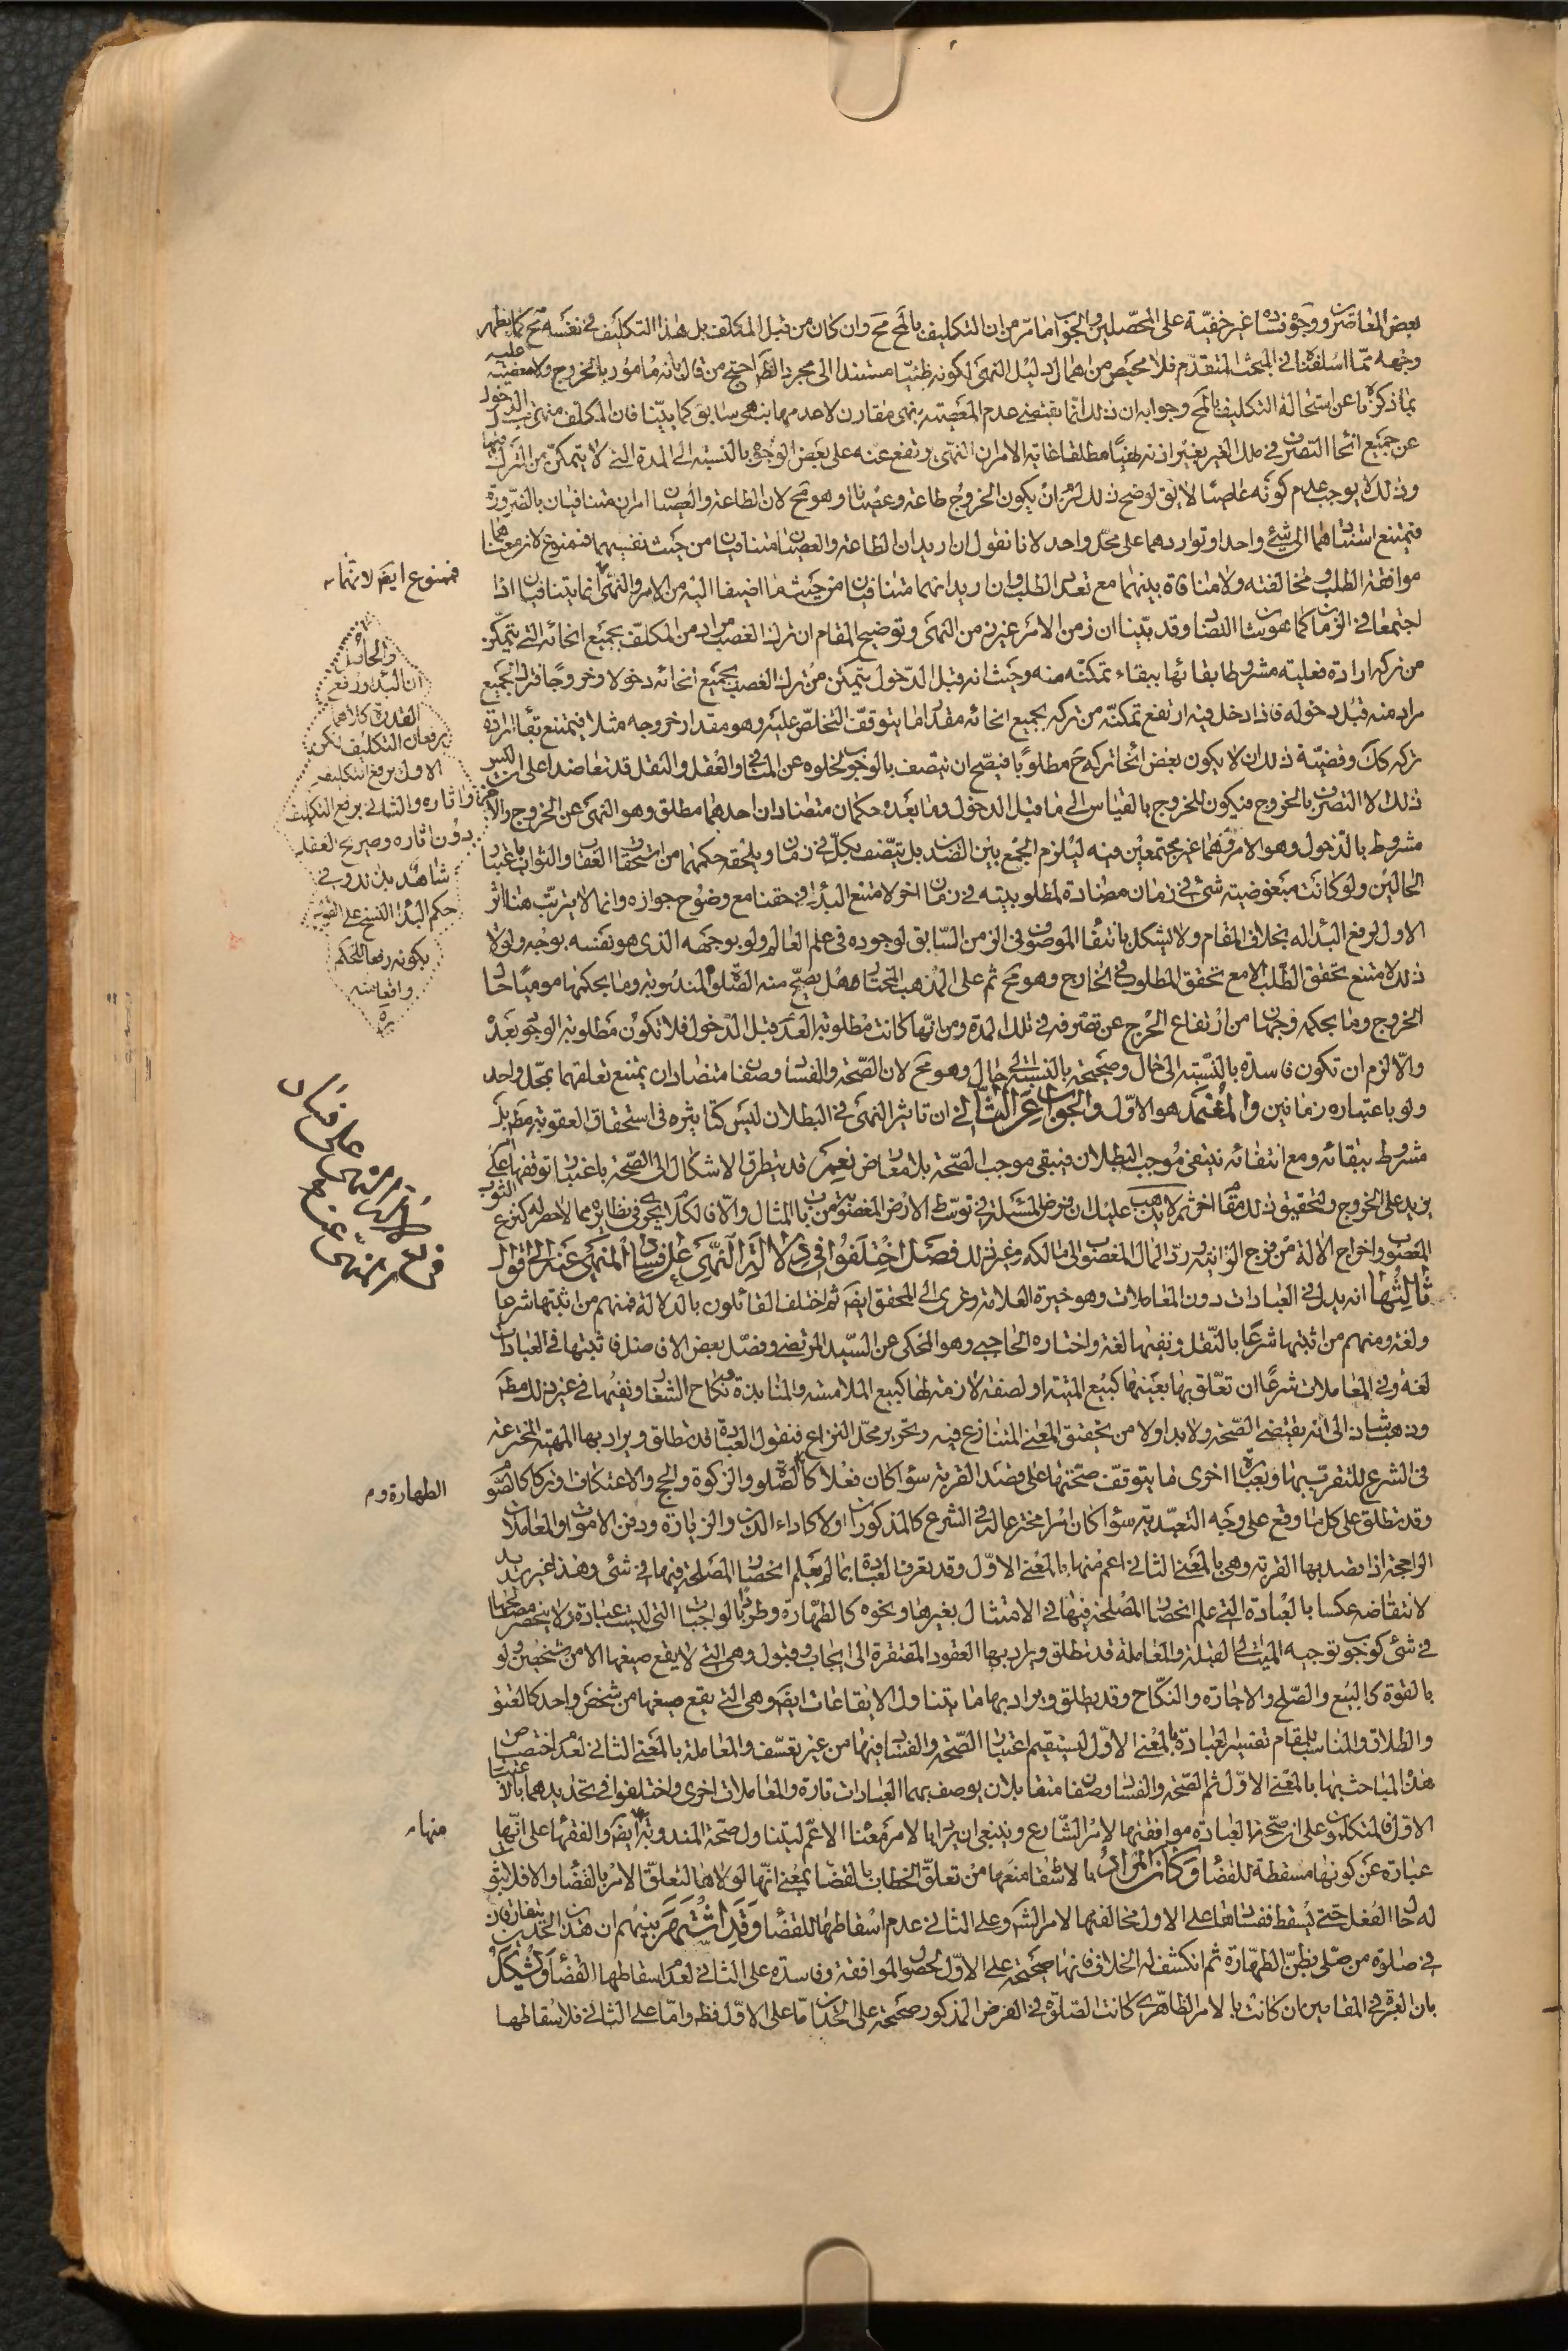 بعض المعاصرين ووجوه فساده غير خفيّة على المحصّلين والجواب ما مرّ من ان التكليف بالمح مح وان كان من قبل المكلف بل هذا التكليف فى نفسه مح كما يظهر
وجهه ممّا اسلفنا فى المبحث المتقدّم فلا محيص من اهمال دليل النهى لكونه ظنيّا مستندا الى مجرد الظهر احتج من قال بانه مامور بالخروج ولا معصية عليه
بما ذكرنا من استحالة التكليف بالمح وجوابه ان ذلك انّما يقتضى عدم المعصية بنهى مقارن لا عدمها بنهى سابق كما بيّنا فان المكلف منهى قبل الدخول
عن جميع انحاء التصرف فى ملك الغير بغير اذنه نهيًا مطلقا غاية الامر ان النهى يرتفع عنه على بعض الوجوه بالنسبة الى المدة التى لا يتمكن من الترك فيها
وذلك لا يوجب عدم كونه عاصيًا لا يق لو صح ذلك لزم ان يكون الخروج طاعة وعصيانا وهو مح لان الطاعة والعصيان امران متنافيان بالضرورة
فيمتنع استنادهما الى شئ واحد او تواردهما على محلّ واحد لانا نقول ان اريد ان الطاعة والعصيان متنافيان من حيث نفسهما فممنوع لان معناهما
موافقة الطلب ومخالفته ولا منافاة بينهما مع تعدد الطلب وان اريد انهما متنافيان من حيث ما اضيفا اليه من الامر والنهى انما يتنافيان اذا
اجتمعا فى الزمان كما هو شان التضاد وقد بيّنا ان زمن الامر غير زمن النهى وتوضيح المقام ان ترك الغصب مراد من المكلف بجميع انحائه التى يتمكن
من تركه ارادة فعلية مشروطا بقائها ببقاء تمكنه منه وحيث انه قبل الدخول يتمكن من ترك الغصب بجميع انحائه دخولا وخروجًا فترك الجميع
مراد منه قبل دخوله فاذا دخل فيه ارتفع تمكنه من تركه بجميع انحائه مقدار ما يتوقف التخلّص عليه وهو مقدار خروجه مثلا فيمتنع بقاء ارادة
تركه كك وقضيّة ذلك ان لا يكون بعض انحاء تركه ح مطلوبًا فيصح ان يتصف بالوجوب لخلوه عن المنافى والعقل والنقل قد تعاضدا على ان ليس
ذلك الا التصرف بالخروج فيكون للخروج بالقياس الى ما قبل الدخول وما بعده حكمان متضادان احدهما مطلق وهو النهى عن الخروج والاخر
مشروط بالدخول وهو الامر به وهما غير مجتمعين فيه ليلزم الجمع بين الضدين بل يتّصف بكلّ فى زمان ويلحقه حكمهما من استحقاق العقاب والثواب باعتبار
الحالين ولو كانت مبغوضية شئ فى زمان مضادة لمطلوبيته فى زمان اخر لامتنع البداء فى حقنا مع وضوح جوازه وانما لا يترتّب هنا اثر
الاول لرفع البداء له بخلاف المقام ولا يشكل بانتفاء الموصوف فى الزمن السّابق لوجوده فى علم العالم ولو بوجهه الذى هو نفسه بوجه ولولا
ذلك لامتنع تحقق الطّلب الا مع تحقق المطلوب فى الخارج وهو مح ثم على المذهب المختار هل يصحّ منه الصّلوة المندوبة وما بحكمها موميًا حال
الخروج وما بحكمه وجهان من ارتفاع الحرج عن تصرفه فى تلك المدة ومن انّها كانت مطلوبة العدم قبل الدّخول فلا تكون مطلوبة الوجود بعده
والّا لزم ان تكون فاسدة بالنّسبة الى حال وصحيحة بالنسبة الى حال وهو مح لان الصّحة والفساد وصفان متضادان يمتنع تعلقهما بمحل واحد
ولو باعتبار زمانين والمعتمد هو الاوّل والجواب عن الثانى ان تاثير النهى فى البطلان ليس كتاثيره فى استحقاق العقوبة مط بل
مشروط ببقائه ومع انتفائه ينتفى موجب البطلان فيبقى موجب الصّحة بلا معارض نعم قد يتطرق الاشكال الى الصّحة باعتبار توقفها على
يزيد على الخروج وتحقيق ذلك مقام اخر ثم لا يذهب عليك ان فرض المسئلة فى توسّط الارض المغصوبة من باب المثال والّا فالكلام يجرى فى نظايره مما لا حصر له كنزع الثوب
المغصوب واخراج الالة من فرج الزانية وردّ المال المغصوب الى مالكه وغير ذلك فصل اختلفوا فى دلالة النهى على فساد المنهى عنه الى اقوال
ثالثها انه يدل فى العبادات دون المعاملات وهو خيرة العلامة وعزى الى المحقق ايض ثم اختلف القائلون بالدلالة فمنهم من اثبتها شرعا
ولغة ومنهم من اثبتها شرعًا بالنّقل ونفيها لغة واختاره الحاجبى وهو المحكى عن السّيد المرتضى وفصّل بعض الافاضل فاثبتها فى العبادات
لغة وفى المعاملات شرعًا ان تعلّق بها بعينها كبيع الميتة او لصفة لازمة لها كبيع الملامسة والمنابذة ونكاح الشغار ونفيها فى غير ذلك مط
وذهب شاذ الى انه يقتضى الصّحة ولا بد اولا من تحقيق المعنى المتنازع فيه وتحرير محلّ النزاع فنقول العبادة قد تطلق ويراد بها المهيّة المخترعة
فى الشرع للتقرّب بها وبعبارة اخرى ما يتوقف صحتها على قصد القربة سواء كان فعلا كالصّلوة والزكوة والحج والاعتكاف او تركا كالصّوم
وقد تطلق على كل ما وقع على وجه التعبّد به سواء كان امرا مخترعا له فى الشرع كالمذكورات او لا كاداء الدين والزيارة ودفن الاموات والمعاملات
الراجحة اذا قصد بها القربة وهى بالمعنى الثانى اعم منها بالمعنى الاوّل وقد يعرف العبادة بما لم يعلم انحصار المصلحة فيها فى شئ وهذا غير سديد
لانتقاضه عكسا بالعبادة التى علم انحصار المصلحة فيها فى الامتثال بغيرها ونحوه كالطهارة وطردا بالواجبات التى ليست عبادة ولا ينحصر مصلحتها
فى شئ كوجوب توجيه الميّت الى القبلة والمعاملة قد تطلق ويراد بها العقود المفتقرة الى ايجاب وقبول وهى التى لا يقع صيغها الا من شخصين ولو
بالقوة كالبيع والصّلح والاجارة والنّكاح وقد يطلق ويراد بها ما يتناول الايقاعات ايض وهى التى يقع صيغها من شخص واحد كالعتق
والطلاق والمناسب للمقام تفسير العبادة بالمعنى الاوّل ليستقيم اعتبار الصّحة والفساد فيها من غير تعسّف والمعاملة بالمعنى الثانى لعدم اختصاص
هذه المباحث بها بالمعنى الاوّل ثم الصّحة والفساد وصفان متقابلان يوصف بهما العبادات تارة والمعاملات اخرى واختلفوا فى تحديدهما بالاعتبار
الاوّل فالمتكلّمون على ان صحّة العبادة موافقتها لامر الشّارع وينبغى ان يراد بالامر معناه الاعم ليتناول صحة المندوبة ايض والفقهاء على انّها
عبارة عن كونها مسقطة للقضاء وكان المراد بالاسقاط منعها من تعلّق الخطاب بالقضاء بمعنى انّها لولاها لتعلّق الامر بالقضاء والا فلا ثبوت
له حال الفعل حتى يسقط ففسادها على الاول مخالفتها لامر الشرع وعلى الثانى عدم اسقاطها للقضاء وقد اشتهر بينهم ان هذين الحدين يتفارقان
فى صلوة من صلّى بظن الطّهارة ثم انكشف له الخلاف فانها صحيحة على الاوّل لحصول الموافقة وفاسدة على الثانى لعدم اسقاطها القضاء ويشكل
بان العبرة فى المقامين ان كانت بالامر الظاهرى كانت الصّلوة فى الفرض المذكور صحيحة على الحدين امّا على الاوّل فظ وامّا على الثانى فلاسقاطها
فممنوع ايض لانهما
والحاصل
ان البداء ورفع
القدرة كلاهما
يرفعان التكليف لكن
الاول يرفع التكليف
واثاره والثانى يرفع التكليف
دون اثاره وصريح العقل
شاهد بذلك وفى
حكم البداء النسخ على القول
بكونه رفعا للحكم
واقعا منه
ره
الطهارة وم
منها